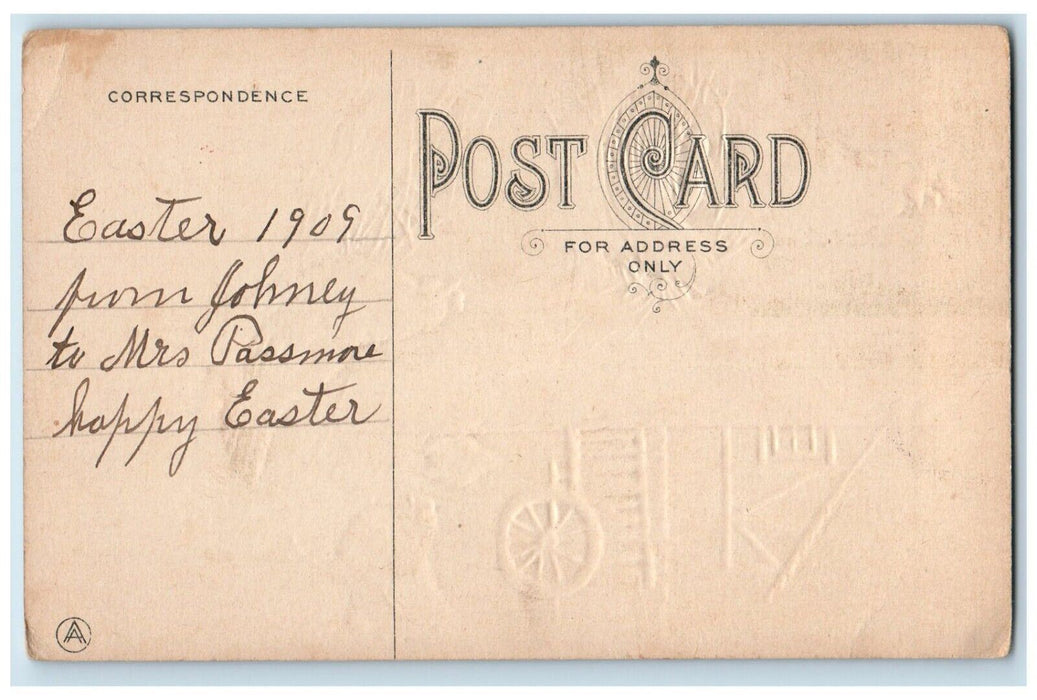 CORRESPONDENCE
POST CARD
FOR ADDRESS
ONLY
Easter 1909
from Johney
to Mrs Passmore
happy Easter